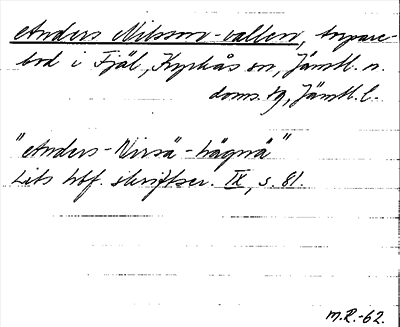 Anders Nilsson-vallen, torpare-
bod i Fjäl, Kyrkås sn, Jämtl. n.
doms. tg, Jämtl. l.
"Anders-Nirsä-hägnä"
Lits hbf. skriftser. IX, s. 81.
M.R.-62.